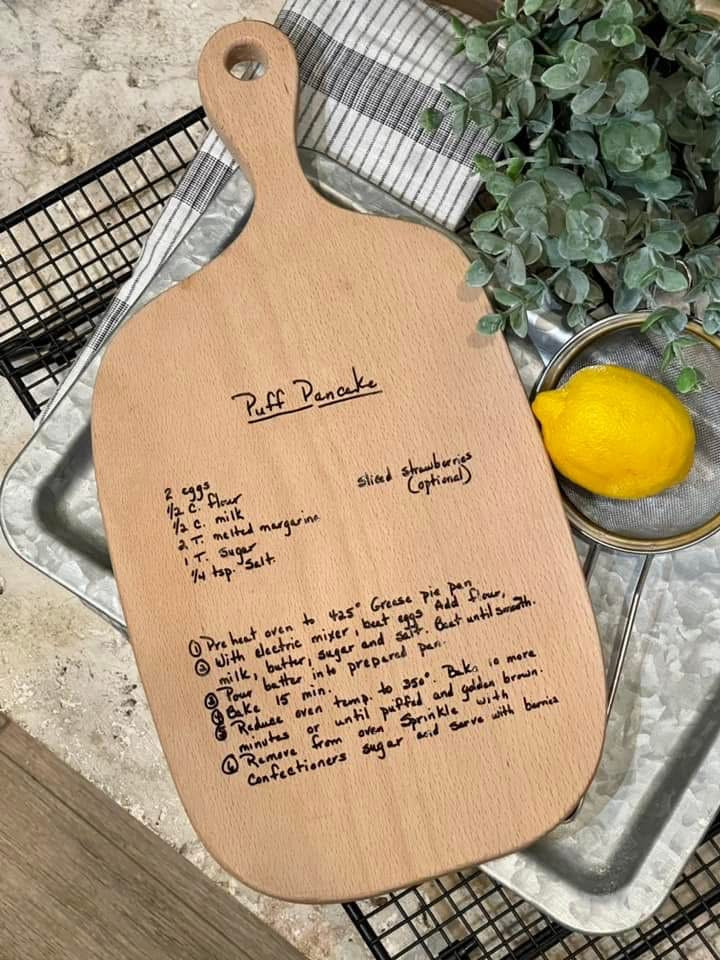 Puff Pancake
2 eggs
1/2 c. flour
1/2 c. milk
2 T. melted margarine
1 T. sugar
1/4 tsp. salt
sliced strawberries
(optional)
① Preheat oven to 425° Grease pie pan
② With electric mixer, beat eggs Add flour,
milk, butter, sugar and salt. Beat until smooth.
③ Pour batter into prepared pan.
④ Bake 15 min.
⑤ Reduce oven temp. to 350°. Bake 10 more
minutes or until puffed and golden brown.
⑥ Remove from oven Sprinkle with
Confectioners sugar and serve with berries